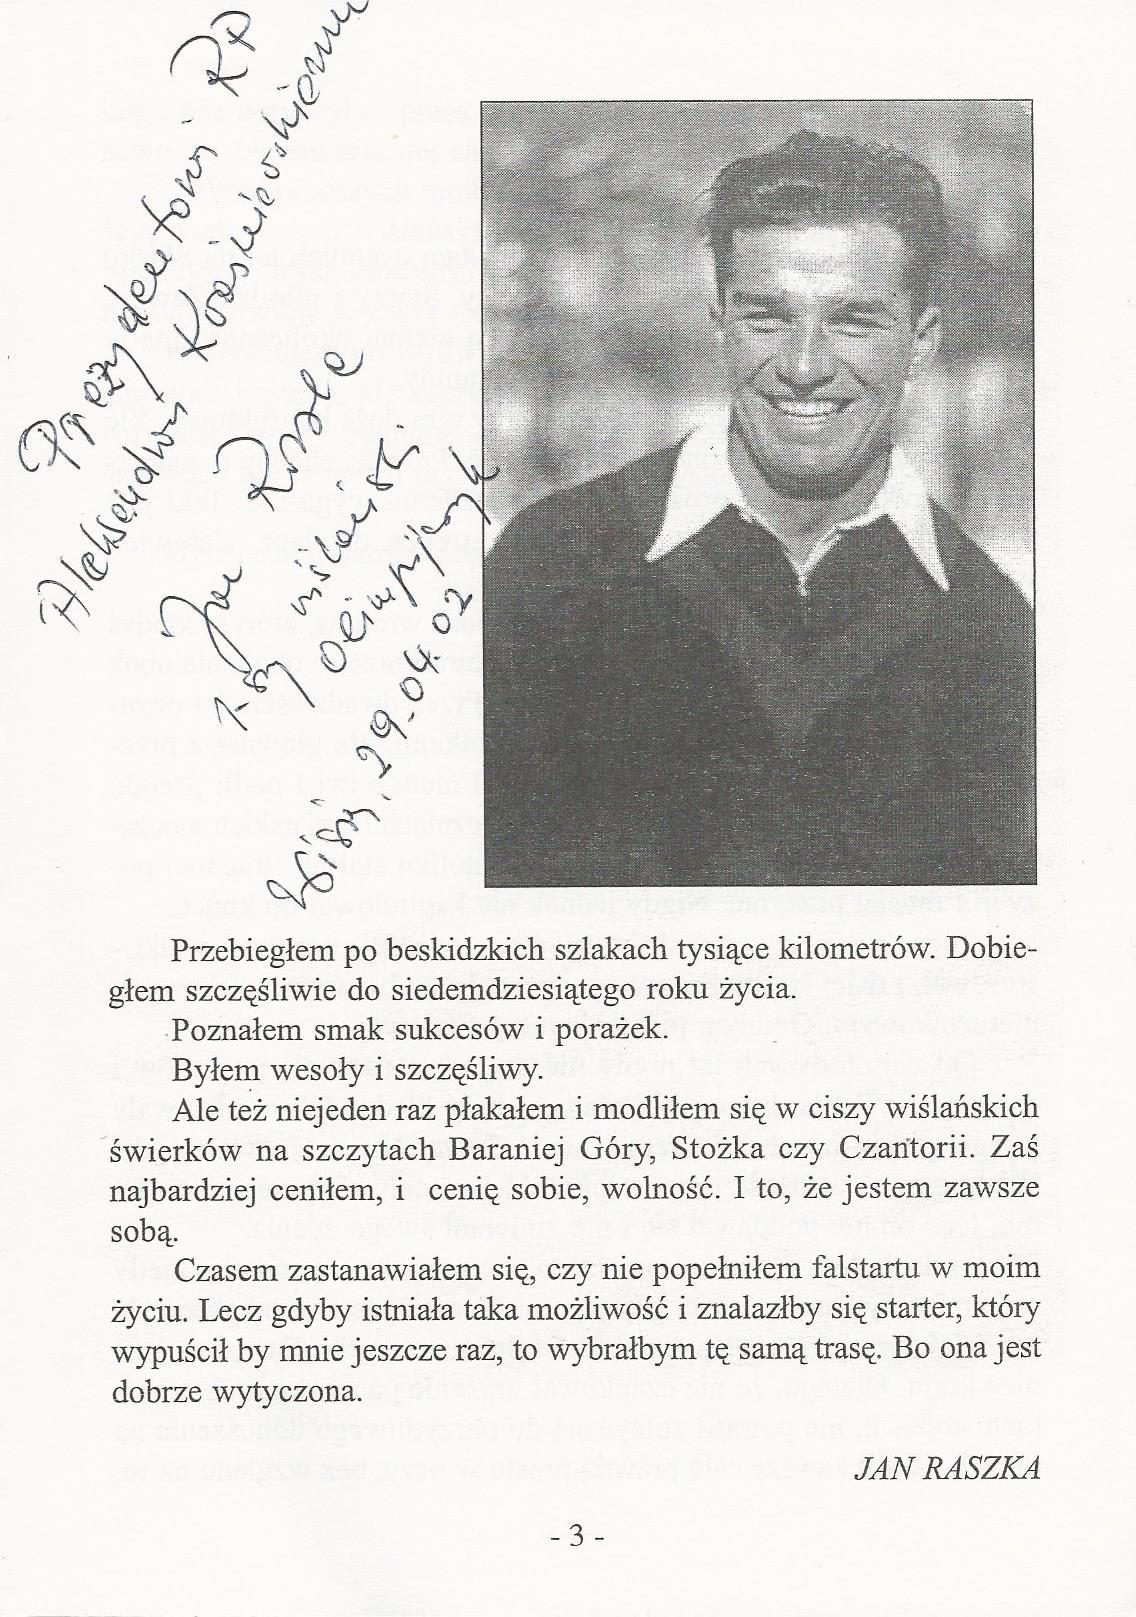 Prezydentowi RP
Aleksandrowi Kwaśniewskiemu
Jan
wiślański
Olimpijczyk
Wisła, 29.04.02
Przebiegłem po beskidzkich szlakach tysiące kilometrów. Dobie-
głem szczęśliwie do siedemdziesiątego roku życia.
Poznałem smak sukcesów i porażek.
Byłem wesoły i szczęśliwy.
Ale też niejeden raz płakałem i modliłem się w ciszy wiślańskich
świerków na szczytach Baraniej Góry, Stożka czy Czantorii. Zaś
najbardziej ceniłem, i cenię sobie, wolność. I to, że jestem zawsze
sobą.
Czasem zastanawiałem się, czy nie popełniłem falstartu w moim
życiu. Lecz gdyby istniała taka możliwość i znalazłby się starter, który
wypuścił by mnie jeszcze raz, to wybrałbym tę samą trasę. Bo ona jest
dobrze wytyczona.
JAN RASZKA
- 3 -